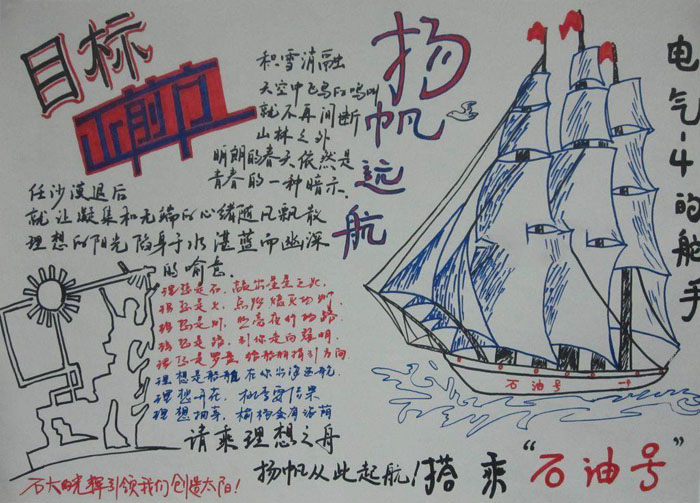 目标
正前方
积雪消融
天空中飞鸟的鸣叫
就不再间断
山林之外
明朗的春天依然是
青春的一种暗示.
任沙漠退后
就让凝集和无端的心绪随风飘散
理想的阳光陷身于水湛蓝而幽深
的喻意.
理想是石,敲出星星之火,
理想是火,点燃熄灭的灯,
理想是灯,照亮夜行的路,
理想是路,引你走向黎明.
理想是罗盘,给船舶指引方向
理想是船舶,在你出海远航
理想开花,桃李要结果
理想抽芽,榆杨会有浓荫
请乘理想之舟
扬帆从此起航!搭乘“石油号”
石大的光辉引领我们创造太阳!
扬帆远航
电气-4的舵手
石油号